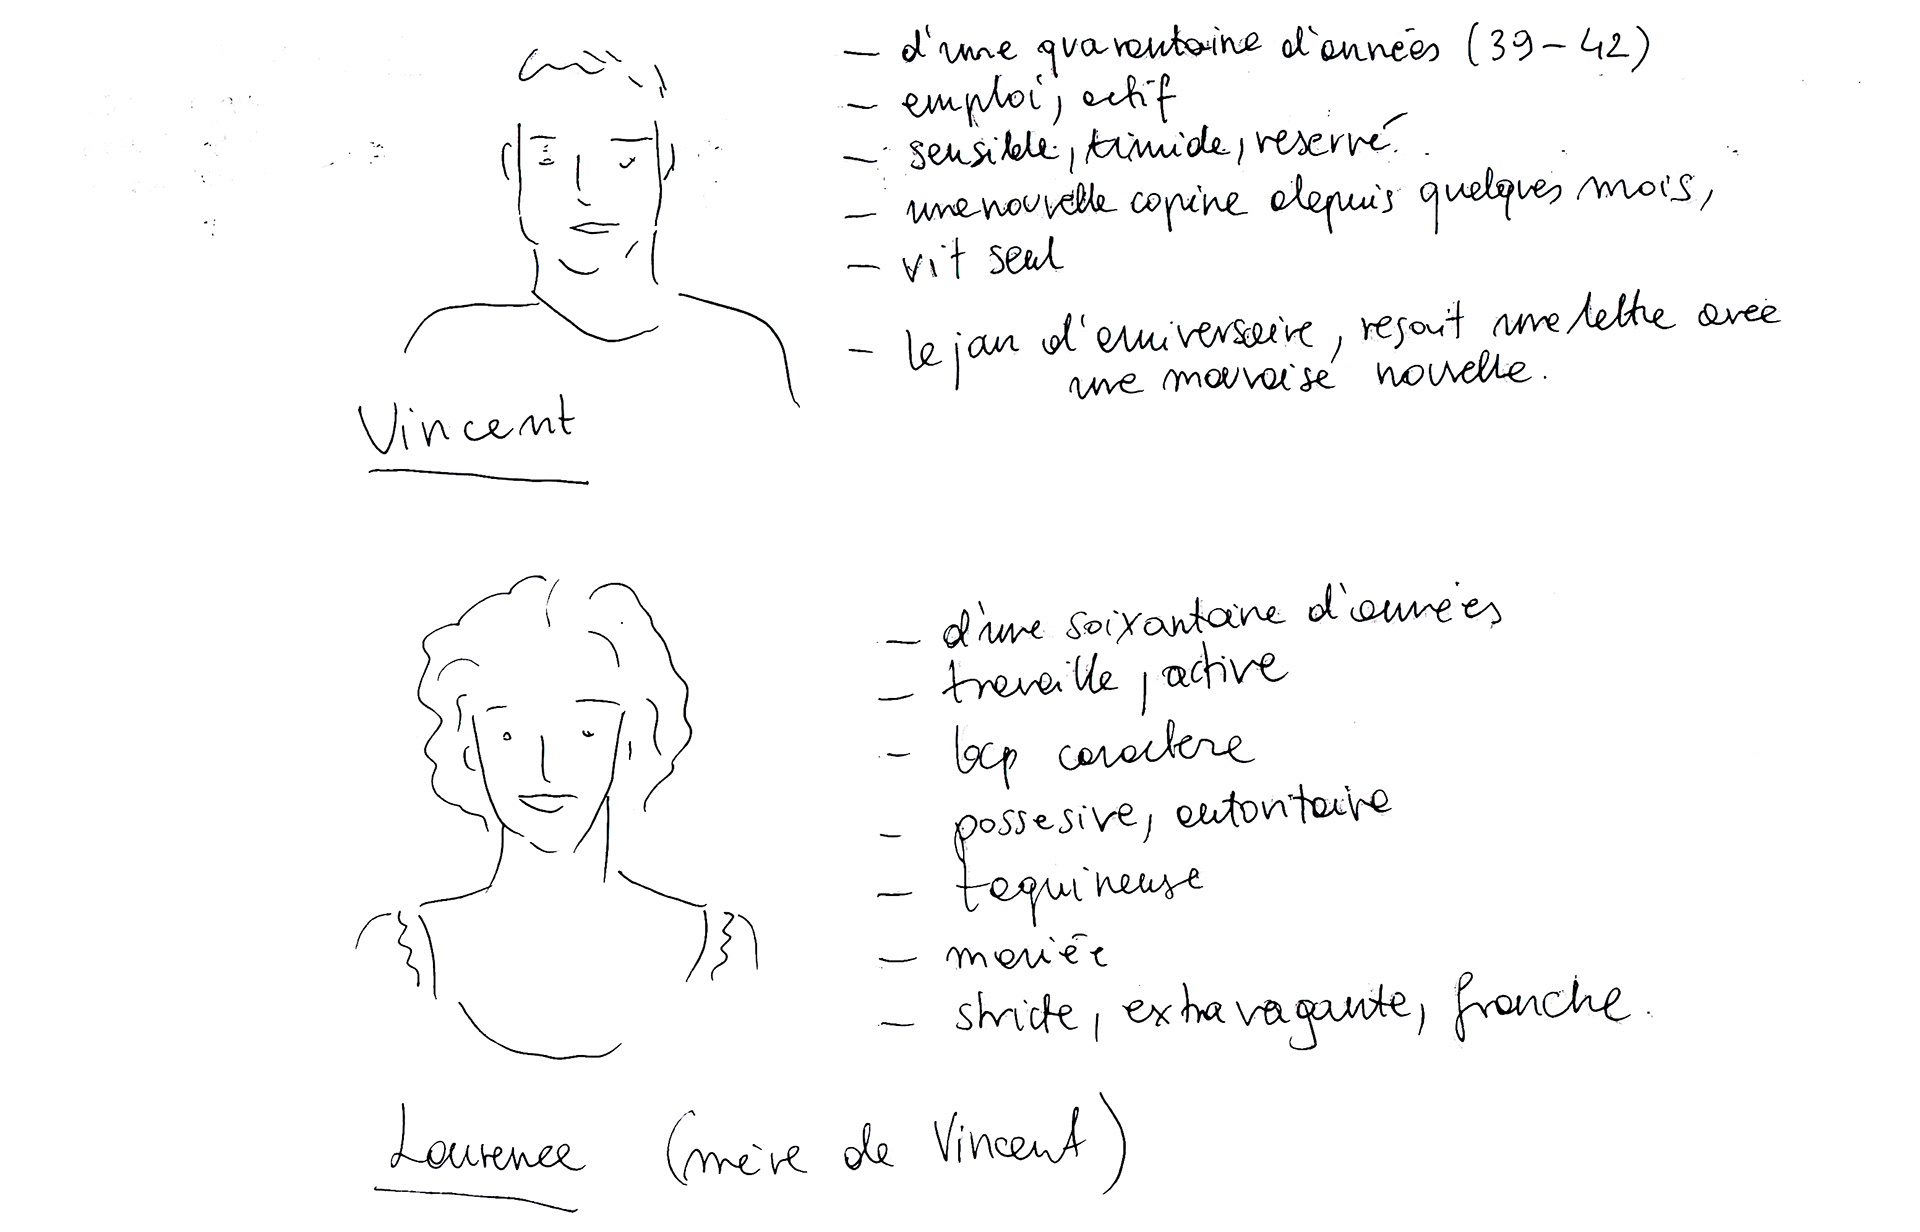 — d'une quarantaine d'années (39-42)
— emploi, actif
— sensible, timide, reservé.
— une nouvelle copine depuis quelques mois,
— vit seul
— le jour d'anniversaire, reçoit une lettre avec
une mauvaise nouvelle.
Vincent
— d'une soixantaine d'années
— travaille, active
— bcp caractere
— possesive, autoritaire
— taquineuse
— mariée
— stricte, extravagante, franche.
Laurence (mère de Vincent)